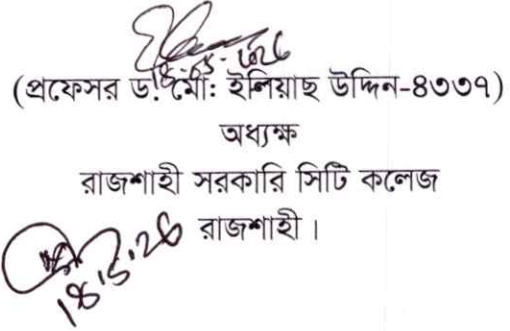 18-05-2026
(প্রফেসর ড. মো: ইলিয়াছ উদ্দিন-৪৩৩৭)
অধ্যক্ষ
রাজশাহী সরকারি সিটি কলেজ
রাজশাহী।
18.5.26